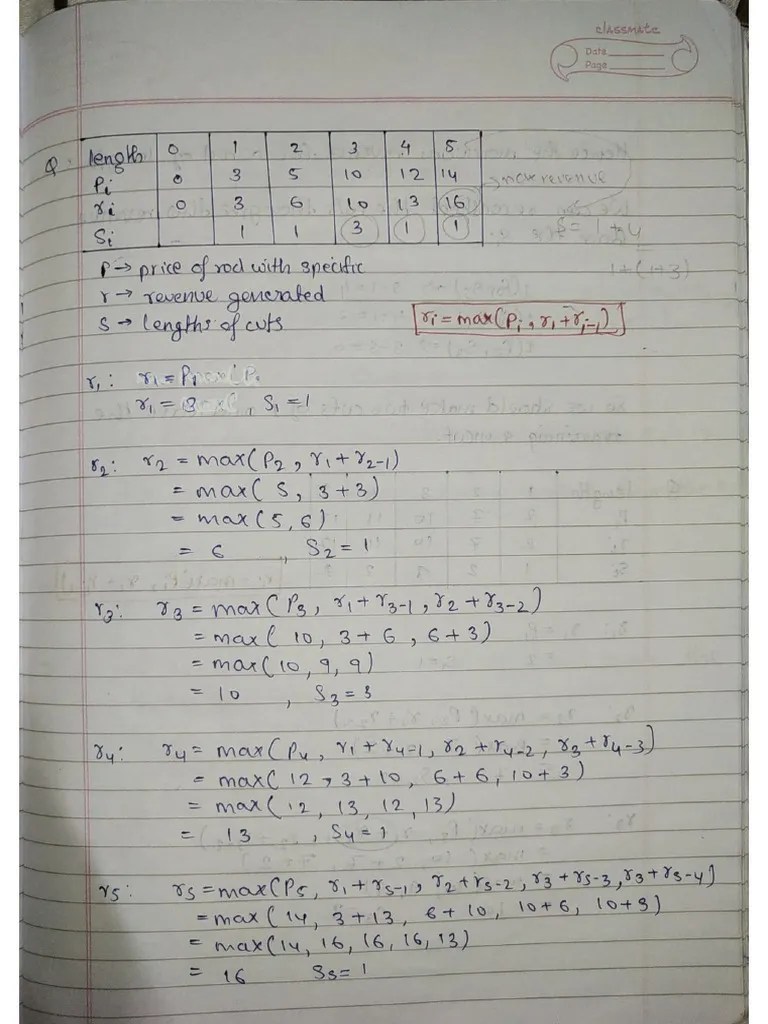 classmate
Date
Page
Q. length 0 1 2 3 4 5
Pi 0 3 5 10 12 14
ri 0 3 6 10 13 16
Si 1 1 3 1 1
max revenue
5 = 1 + 4
1 + (1+3)
P → price of rod with specific
r → revenue generated
S → lengths of cuts
ri = max(Pi, r1 + ri-1)
r1: r1 = P1
r1 = 3, S1 = 1
r2: r2 = max(P2, r1 + r2-1)
= max(5, 3+3)
= max(5, 6)
= 6, S2 = 1
r3: r3 = max(P3, r1 + r3-1, r2 + r3-2)
= max(10, 3+6, 6+3)
= max(10, 9, 9)
= 10, S3 = 3
r4: r4 = max(P4, r1 + r4=1, r2 + r4-2, r3 + r4-3)
= max(12, 3+10, 6+6, 10+3)
= max(12, 13, 12, 13)
= 13, S4 = 1
r5: r5 = max(P5, r1 + r5-1, r2 + r5-2, r3 + r5-3, r3 + r5-4)
= max(14, 3+13, 6+10, 10+6, 10+3)
= max(14, 16, 16, 16, 13)
= 16 S5 = 1